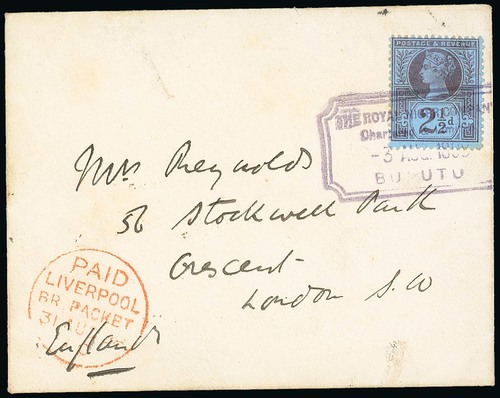 POSTAGE & REVENUE
2½d
THE ROYAL NIGER COMPANY
Chartered
-3 AUG. 18
BURUTU
Mrs Reynolds
56 Stockwell Park
Crescent
London S.W
PAID
LIVERPOOL
BR. PACKET
31 AU
England